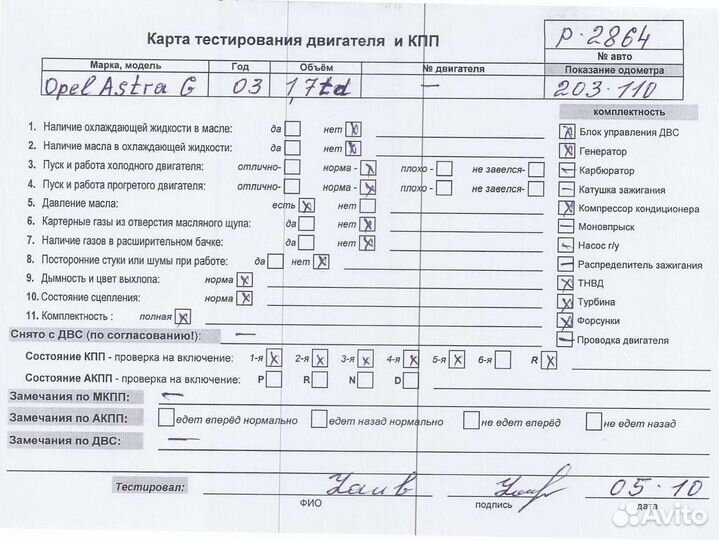 Карта тестирования двигателя и КПП
Р-2864
№ авто
Марка, модель Год Объём № двигателя Показание одометра
Opel Astra G 03 1,7td — 203-110
комплектность
1. Наличие охлаждающей жидкости в масле: да нет X
2. Наличие масла в охлаждающей жидкости: да нет X
3. Пуск и работа холодного двигателя: отлично- норма - X плохо - не завелся-
4. Пуск и работа прогретого двигателя: отлично- норма - X плохо - не завелся-
5. Давление масла: есть X нет
6. Картерные газы из отверстия масляного щупа: да нет X
7. Наличие газов в расширительном бачке: да нет X
8. Посторонние стуки или шумы при работе: да нет X
9. Дымность и цвет выхлопа: норма X
10. Состояние сцепления: норма X
11. Комплектность : полная X
X Блок управления ДВС
X Генератор
— Карбюратор
— Катушка зажигания
X Компрессор кондиционера
— Моновпрыск
— Насос г/у
— Распределитель зажигания
X ТНВД
X Турбина
X Форсунки
— Проводка двигателя
Снято с ДВС (по согласованию!): —
Состояние КПП - проверка на включение: 1-я X 2-я X 3-я X 4-я X 5-я X 6-я R X
Состояние АКПП - проверка на включение: P R N D
Замечания по МКПП: —
Замечания по АКПП: едет вперёд нормально едет назад нормально не едет вперёд не едет назад
Замечания по ДВС: —
Тестировал: 05-10
ФИО подпись дата
Avito